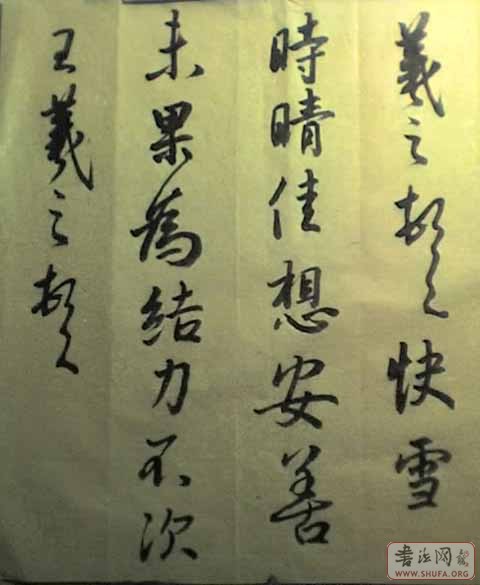 羲之頓首快雪
時晴佳想安善
未果為結力不次
王羲之頓首
WWW.SHUFA.ORG